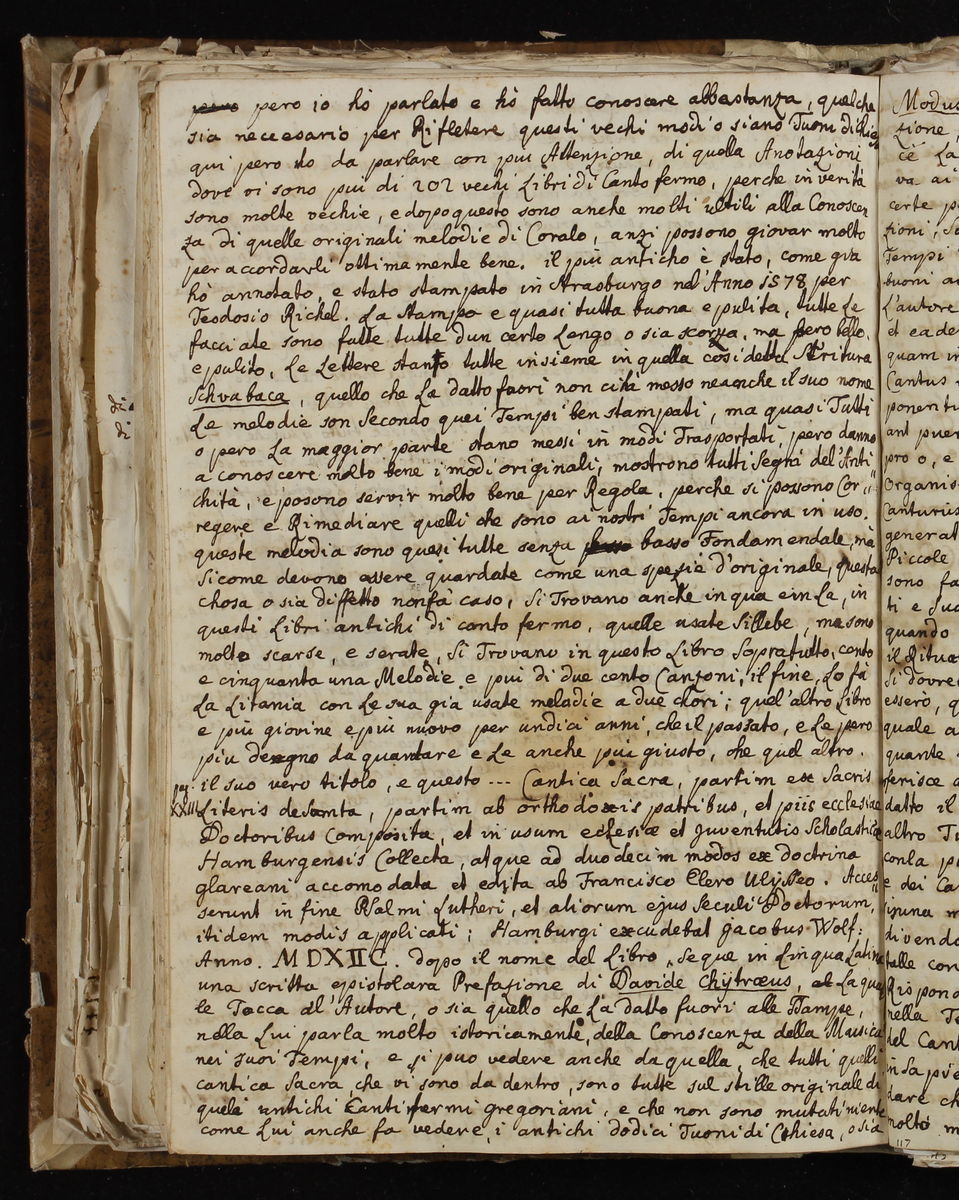 pero io hò parlato e hò fatto conoscere abbastanza, qualche
sia necessario per Rifletere questi vechi modi o siano Tuoni di chie
qui pero ho da parlare con piu Attenzione, di quella Anotazioni
dove vi sono piu di 202 vechi Libri di Canto fermo, perche in verità
sono molte vechie, e dopo questo sono anche molti utili alla Conoscen
za di quelle originali melodie di Coralo, anzi possono giovar molto
per accordarli ottimamente bene. il piu anticho è stato, come gia
hò annotato, e stato stampato in Strasburgo nel'Anno 1578 per
Teodosio Richel. La Stampa e quasi tutta buona e pulita, tutte Le
facciate sono fatte tutte d'un certo Longo o sia scorza, ma pero bello,
e pulito, Le Lettere stanno tutte insieme in quella cosi detta Scritura
Schvabaca, quello che La datto fuori non ci hà messo neanche il suo nome
Le melodie son Secondo quei Tempi ben stampati, ma quasi Tutti
o pero La maggior parte stano messi in modi Trasportati, pero danno
a conoscere molto bene i modi originali, mostrono tutti Segni del'Anti
chità, e posono servir molto bene per Regola, perche si possono Cor„
regere e Rimediare quelli che sono ai nostri Tempi ancora in uso.
queste melodia sono quasi tutte senza basso Fondamendale, mà
Sicome devono essere guardate come una spezie d'originale, questa
chosa o sia diffetto non fà caso, Si Trovano anche in qua e in La, in
questi Libri antichi di canto fermo, quelle usate Sillebe, ma sono
molto scarse, e serate, Si Trovano in questo Libro Sopratutto, cento
e cinquanta una Melodie e piui di due cento Canzoni, il fine Lo fà
La Litania con Le sua già usate melodie a due chori; quel'altro Libro
e piu giovine e più nuovo per undici anni, che il passato, e Le pero
piu degno da guardare e Le anche piu giusto, che quel altro.
pag: il suo vero titolo, e questo --- Cantica Sacra, partim ex Sacris
XXIII Literis desumta, partim ab orthodoxis patribus, et piis ecclesiae
Doctoribus Composita, et in usum eclesiæ et Juventutis Scholasticæ
Hamburgensis Collecta, atque ad duodecim modos ex doctrina
glareani accomodata et edita ab Francisco Elero Ulysseo. Acces„
serunt in fine Psalmi Lutheri, et aliorum ejus Seculi Doctorum,
itidem modis applicati; Hamburgi excudebat jacobus Wolf:
Anno. MDXIIC. dopo il nome del Libro, Seque in Linqua Latina
una scritta epistolara Prefazione di Davide Chÿtræus, La qua
le Tocca al'Autore, o sia quello che La datto fuori alle Stampe,
nella Lui parla molto istoricamente, della Conoscenza della Musica
nei suoi Tempi, e si puo vedere anche da quella, che tutti quelli
cantica Sacra che vi sono da dentro, sono tutte sul stille originale di
quele antichi Canti fermi gregoriani, e che non sono mutati niente
come Lui anche fa vedere, i antichi dodici Tuoni di Chiesa, o sia
di
di
Modus
zione,
cè La
va ai
certe p
zioni, So
Tempi
buoni a
L'autore
et eade
quam in
Cantus
ponentu
ant puer
pro o, e
Organis
Canturus
general
Piccole
sono fa
ti e Suo
quando
il Ritua
Si dovre
essero, q
quale a
quante
ferisce a
datto il
altro Tu
con la pi
e dei Ca
ijuna m
divendo
talle con
Rispono
nella Te
del Cant
in Sa pie
dare ch
molto m
117